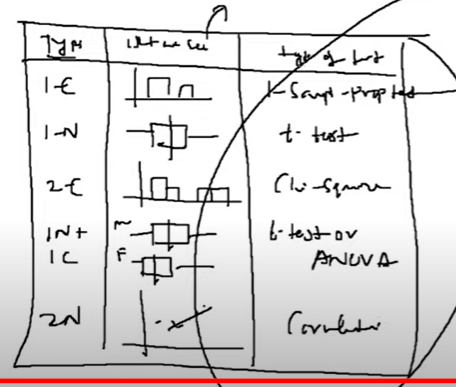 Type What we see type of test
1-C 1-Sampl-Prop test
1-N t-test
2-C Chi-Square
1N+ M t-test or
1C F ANOVA
2N Correlation